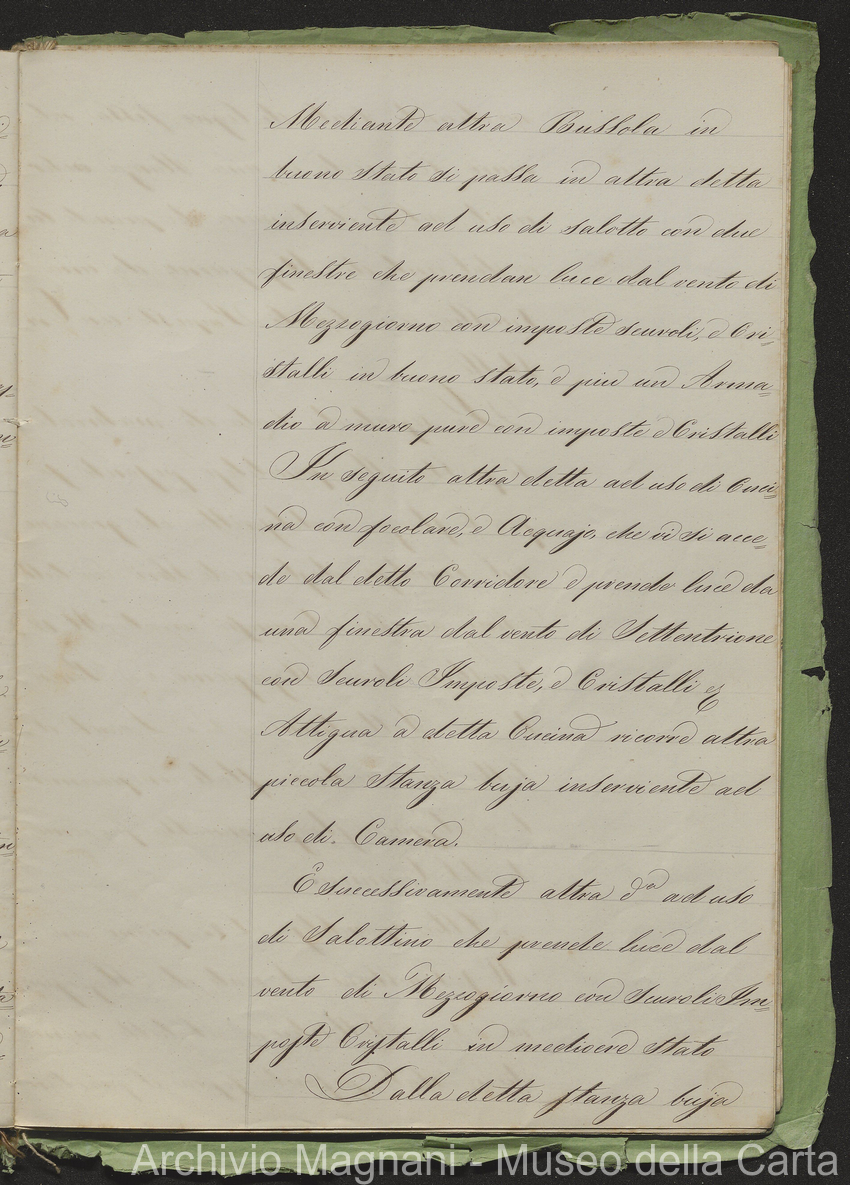 Mediante altra Bussola in
buono stato si passa in altra detta
inserviente ad uso di salotto con due
finestre che prendan luce dal vento di
Mezzogiorno con imposte scuroli, e Cri=
stalli in buono stato, e più un Arma=
dio a muro pure con imposte e Cristalli
In seguito altra detta ad uso di Cuci=
na con focolare, e Acquajo, che vi si acce=
de dal detto Corridore e prende luce da
una finestra dal vento di Settentrione
con Scuroli Imposte, e Cristalli
Attigua a detta Cucina ricorre altra
piccola Stanza buja inserviente ad
uso di. Camera.
E successivamente altra da ad uso
di Salottino che prende luce dal
vento di Mezzogiorno con Scuroli Im=
poste Cristalli in mediocre stato
Dalla detta stanza buja
Archivio Magnani - Museo della Carta